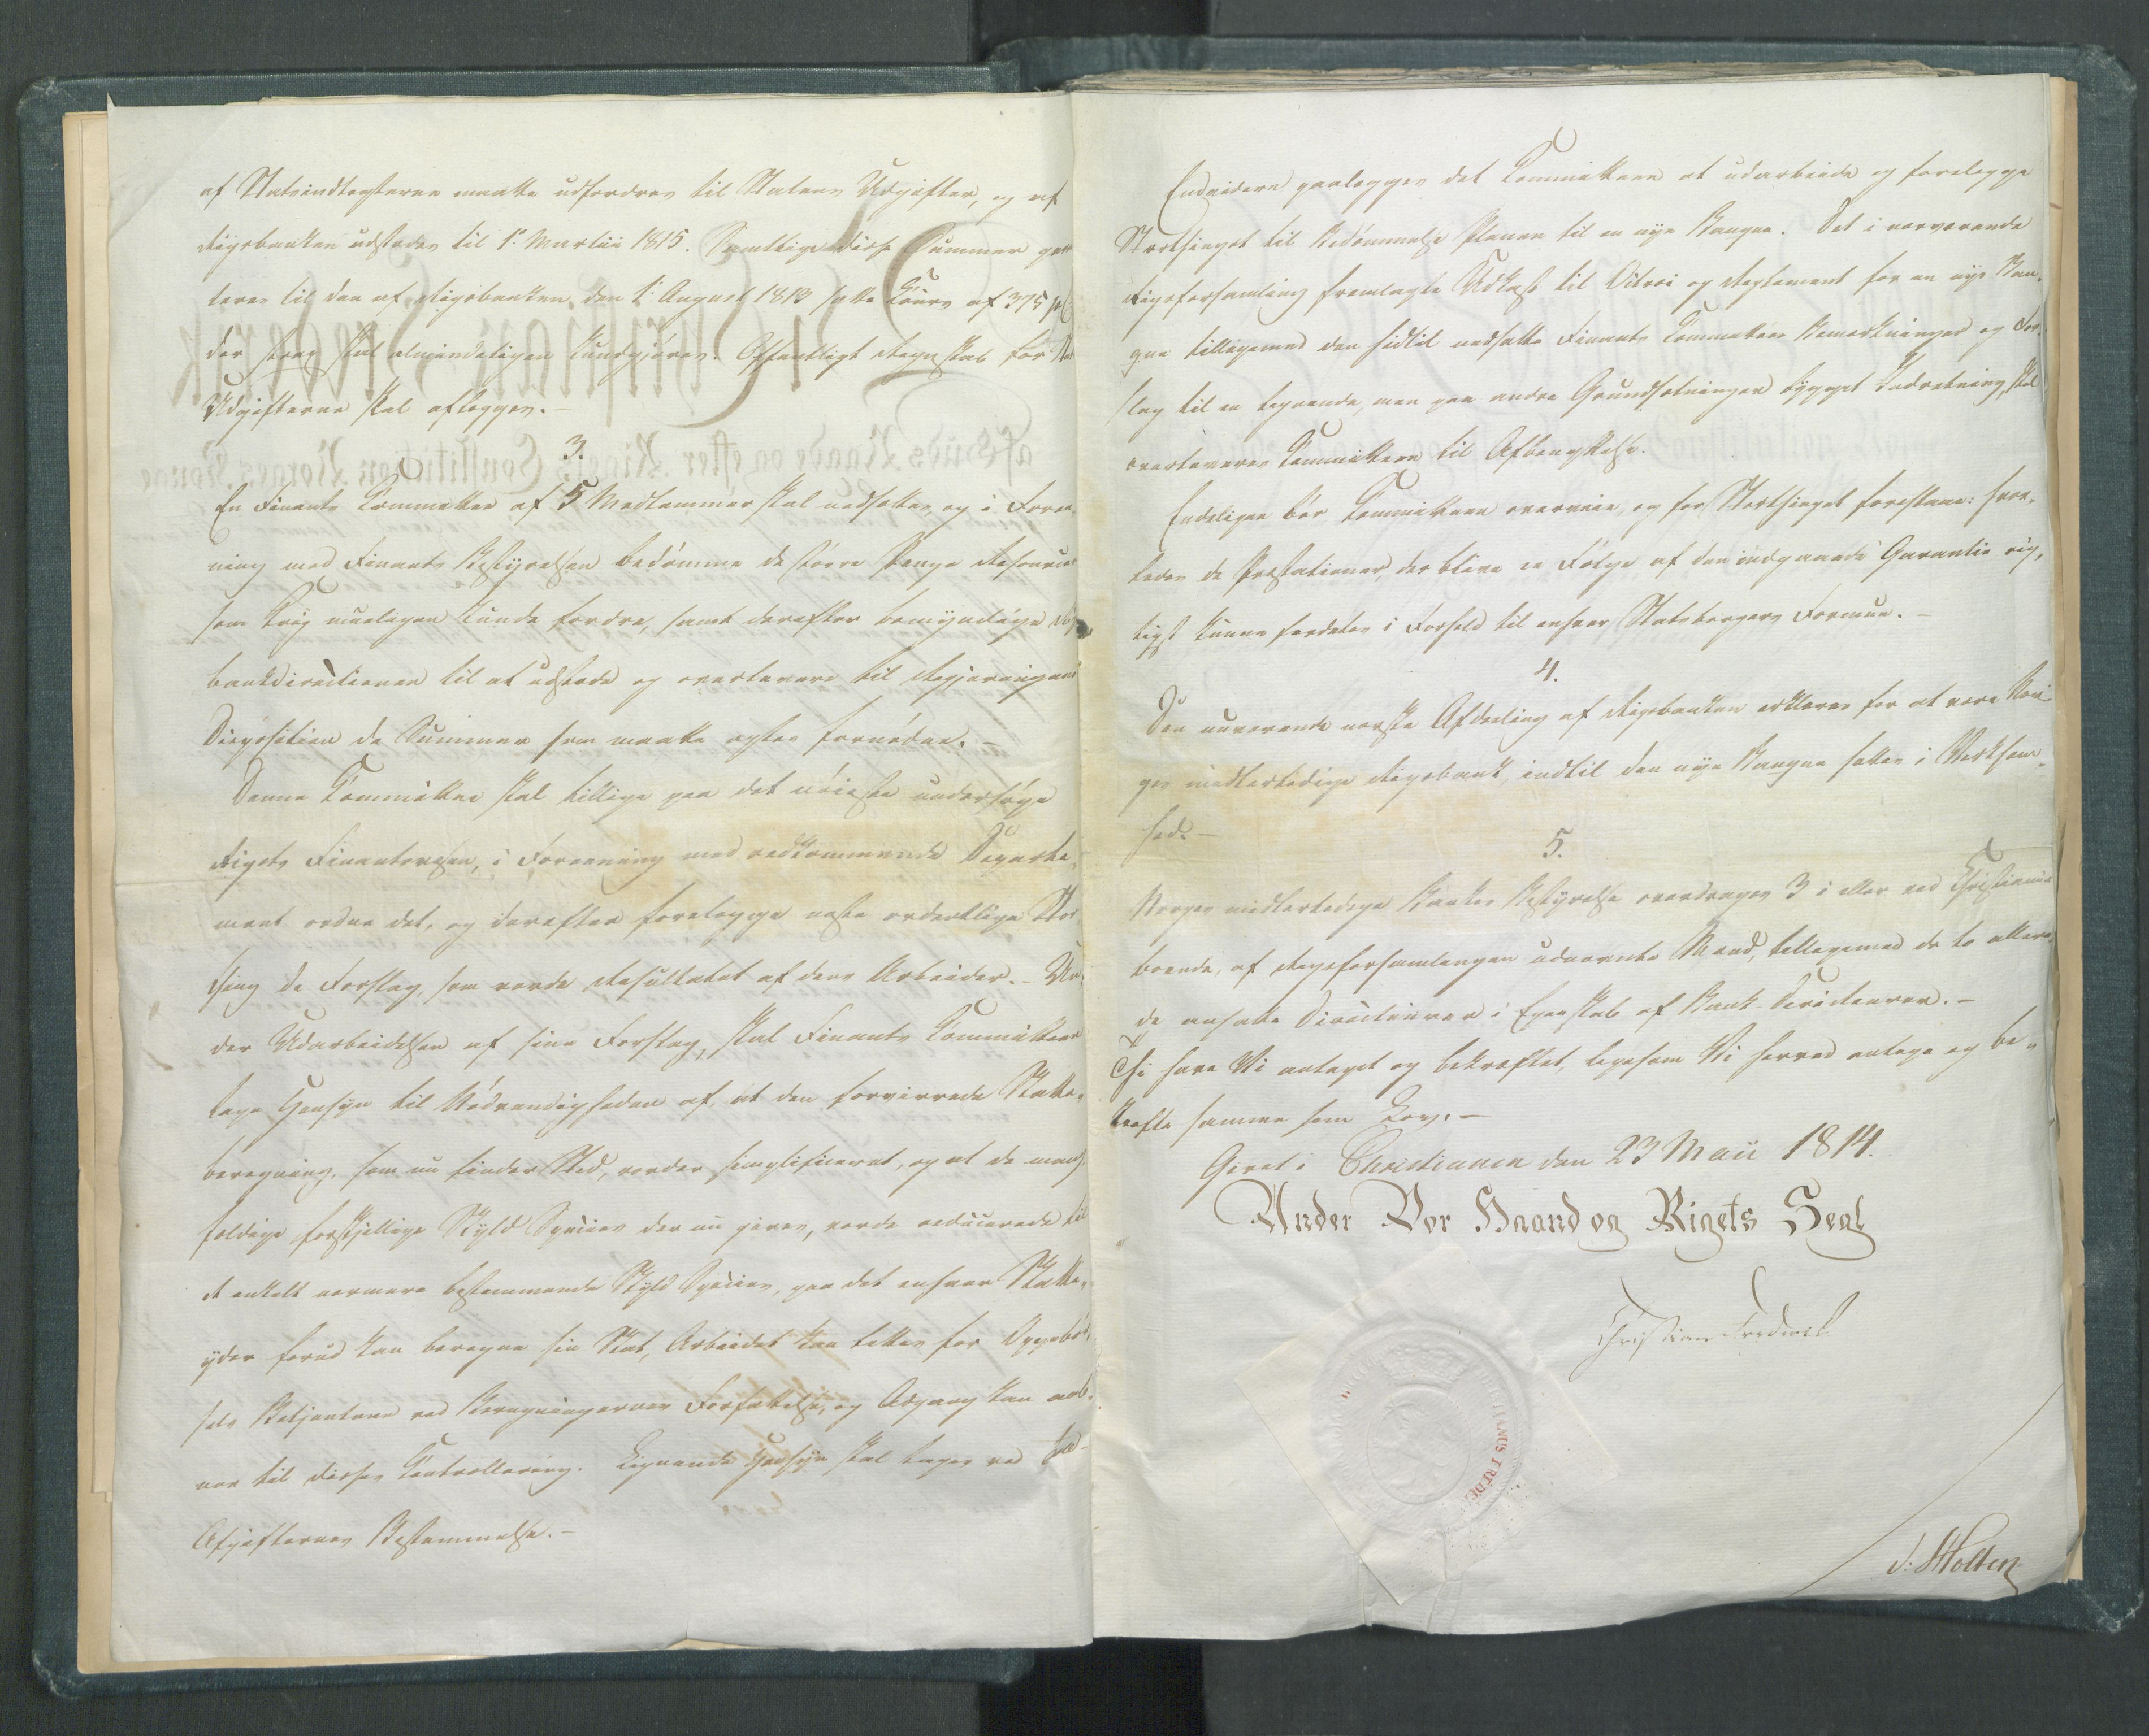 af Statsindtægterne maatte udfordres til Statens Udgifter, og af
Rigsbanken udstædes til 1ᵉ Martii 1815. Samtlige disse Summer garan
teres til den af Rigsbanken den 1ᵉ August 1813 satte Cours af 375 pC
der strax skal almindeligen kundgjøres. Offentligt Regnskab for
Udgifterne skal aflægges.-
3.
En Finants Committee af 5 Medlemmer skal nedsættes og i Foree-
ning med Finants Bestyrelsen bedømme de større Penge Resourcer
som Krig mueligen kunde fordre, samt derefter bemyndige Rigs
bankdirectionen til at udstæde og overlevere til Regjeringens
Disposition de Summer som maatte agtes fornødne.-
Denne Committee skal tillige paa det nøieste undersøge
Rigets Finantsvæsen, i Foreening med vedkommende Departe-
ment ordne det, og derefter forelægge næste ordentlige Stor
thing de Forslag, som vorde Resultatet af dens Arbeider.- Un
der Udarbeidelsen af sine Forslag, skal Finants Committeen
tage Hensyn til Nødvendigheden af, at den forvirrede Skatte-
beregning, som nu finder Sted, vorder simplificeret, og at de mang
foldige forskjellige Skyld Speciees der nu gives, vorde reducerede til
et enkelt nærmere bestemmende Skyld Speciees, paa det enhver Skatte-
yder forud kan beregne sin Skat, Arbeidet kan lettes for Oppebør-
sels Betjentene ved Beregningernes Forfattelse, og Adgang kan aab-
nes til disses Controllering. Lignende Hensyn skal tages ved
Afgifternes Bestemmelse.-
Endvidere paalægges det Committeen at udarbeide og forelægge
Storthinget til Bedømmelse Planen til en nye Banque. Det i nærværende
Rigsforsamling fremlagte Udkast til Octroi og Reglement for en nye Ban-
que tilligemed den hidtil nedsatte Finants Committees Bemærkninger og For-
slag til en lignende, men paa andre Grundsætninger bygget Indretning, skal
overleveres Committeen til Afbenyttelse.
Endeligen bør Committeen overveie, og for Storthinget forestaae: hvor-
ledes de Præstationer, der blive en Følge af den indgaaede Garantie rig-
tigst kunne fordeles i Forhold til enhver Statsborgers Formue.-
4.
Den nuværende norske Afdeeling af Rigsbanken erklæres for at være Nor-
ges midlertidige Rigsbank, indtil den nye Banque sættes i Virksom-
hed.-
5.
Norges midlertidige Banks Bestyrelse overdrages 3 i eller ved Christiania
boende, af Rigsforsamlingen udnævnte Mænd, tilligemed de to allere-
de ansatte Directeurer i Egenskab af Bank Directeurer.-
Thi have Vi antaget og bekræftet, ligesom Vi herved antage og be-
kræfte samme som Lov.-
Givet i Christiania den 23 Maii 1814.
Under Vor Haand og Rigets Segl
Christian Frederik
J: Holten